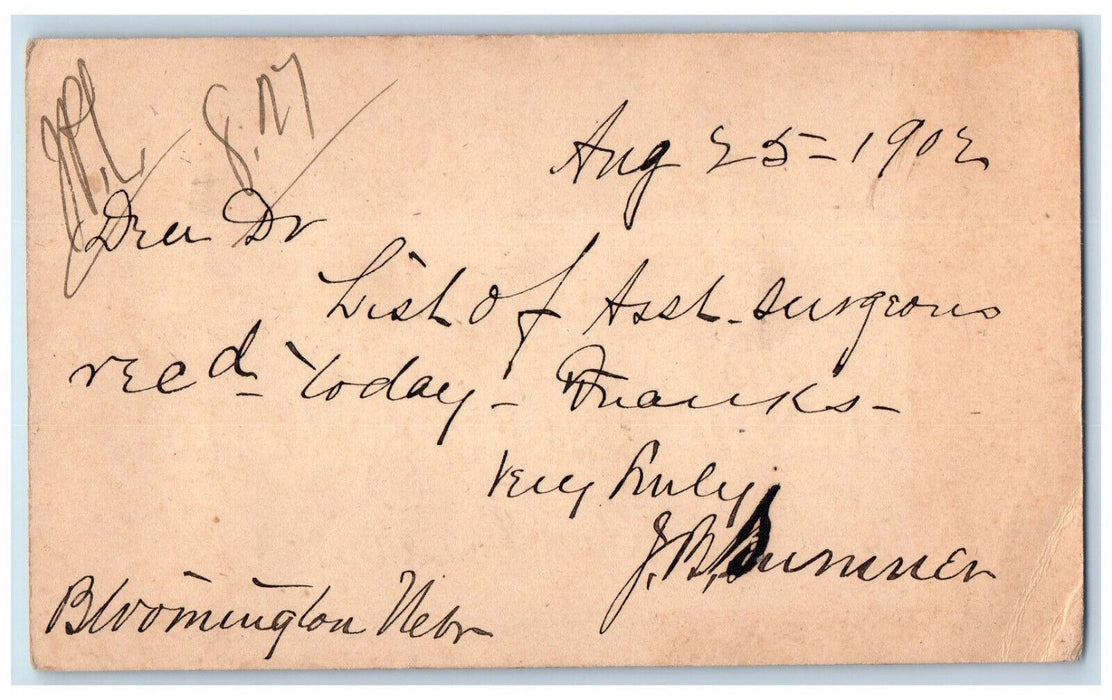 8.27
Aug 25-1902
Dear Dr
List of Asst. Surgeons
recd- today- Thanks-
Very truly
J.B. Sumner
Bloomington Nebr